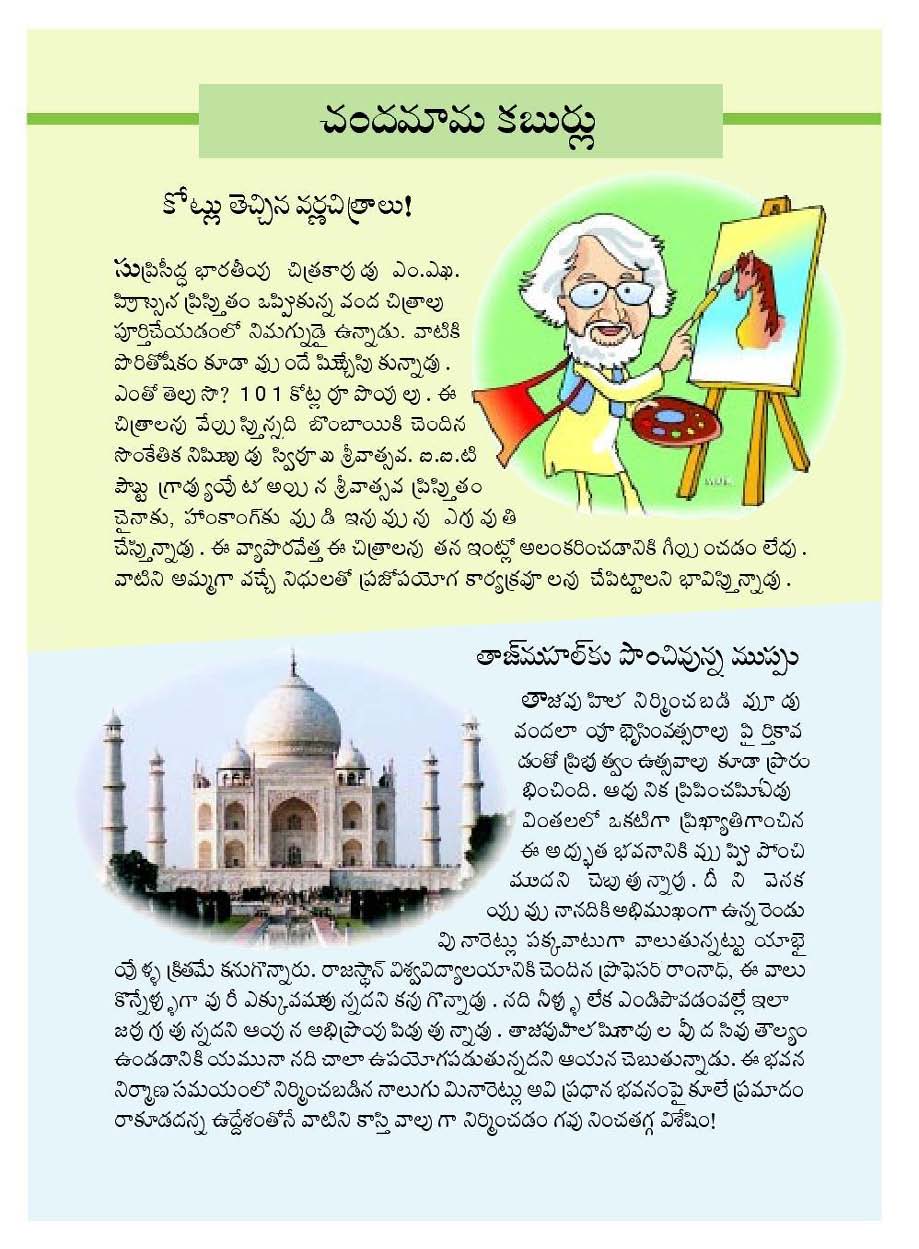 చందమామ కబుర్లు
కోట్లు తెచ్చిన వర్ణచిత్రాలు!
సుప్రిసిద్ధ భారతీయ చిత్రకారుడు ఎం.ఎఖ.
హ్రిస్సేన ప్రిస్తుితం ఒప్పికున్న వంద చిత్రాలు
పూర్తిచేయడంలో నిమగ్నుడై ఉన్నాడు. వాటికి
పారితోషికం కూడా ముందే
ఎంతో తెలుసా? 101 కోట్ల రూపాయలు. ఈ
చిత్రాలను వేయిస్తున్నది బొంబాయికి చెందిన
సాంకేతిక నిపుణుడు స్విరూప శ్రీవాత్సవ. ఐ.ఐ.టి
పోట్టు గ్రాడ్యుయేట అయిన శ్రీవాత్సవ ప్రిస్తుితం
చైనాకు, హాంకాంగ్‌కు ముడి ఇనుమును ఎగువుతి
చేస్తున్నాడు. ఈ వ్యాపారవేత్త ఈ చిత్రాలను తన ఇంట్లో అలంకరించడానికి గీయించడం లేదు.
వాటిని అమ్మగా వచ్చే నిధులతో ప్రజోపయోగ కార్యక్రమాలను చేపిట్టాలని భావిస్తున్నాడు.
తాజ్‌మహల్‌కు పొంచివున్న ముప్పు
తాజమహిల నిర్మించబడి మూడు
వందలా యాభైసింవత్సరాలు పైర్తికావ
డంతో ప్రిభుత్వం ఉత్సవాలు కూడా ప్రారం
భించింది. ఆధునిక ప్రిపించపిుఏడు
వింతలలో ఒకటిగా ప్రిఖ్యాతిగాంచిన
ఈ అద్భుత భవనానికి ముప్పి పోంచి
ఉందని చెబుతున్నారు. దీని వెనక
యమునానదికిఅభిముఖంగా ఉన్నరెండు
మినారెట్లు పక్కవాటుగా వాలుతున్నట్టు యాభై
యేళ్ళ క్రితమే కనుగొన్నారు. రాజస్థాన్ విశ్వవిద్యాలయానికి చెందిన ప్రొఫెసర్ రాంనాథ్, ఈ వాలు
కొన్నేళ్ళుగా మరీ ఎక్కువవుతున్నదని కనుగొన్నాడు. నది నీళ్ళు లేక ఎండిపోవడంవల్లే ఇలా
జరుగుతున్నదని ఆయన అభిప్రాయపిడుతున్నాడు. తాజమహిల పునాదుల మీద సమతౌల్యం
ఉండడానికి యమునా నది చాలా ఉపయోగపడుతున్నదని ఆయన చెబుతున్నాడు. ఈ భవన
నిర్మాణ సమయంలో నిర్మించబడిన నాలుగు మినారెట్లు అవి ప్రధాన భవనంపై కూలే ప్రమాదం
రాకూడదన్న ఉద్దేశంతోనే వాటిని కాస్తి వాలుగా నిర్మించడం గమనించతగ్గ విశేషిం!